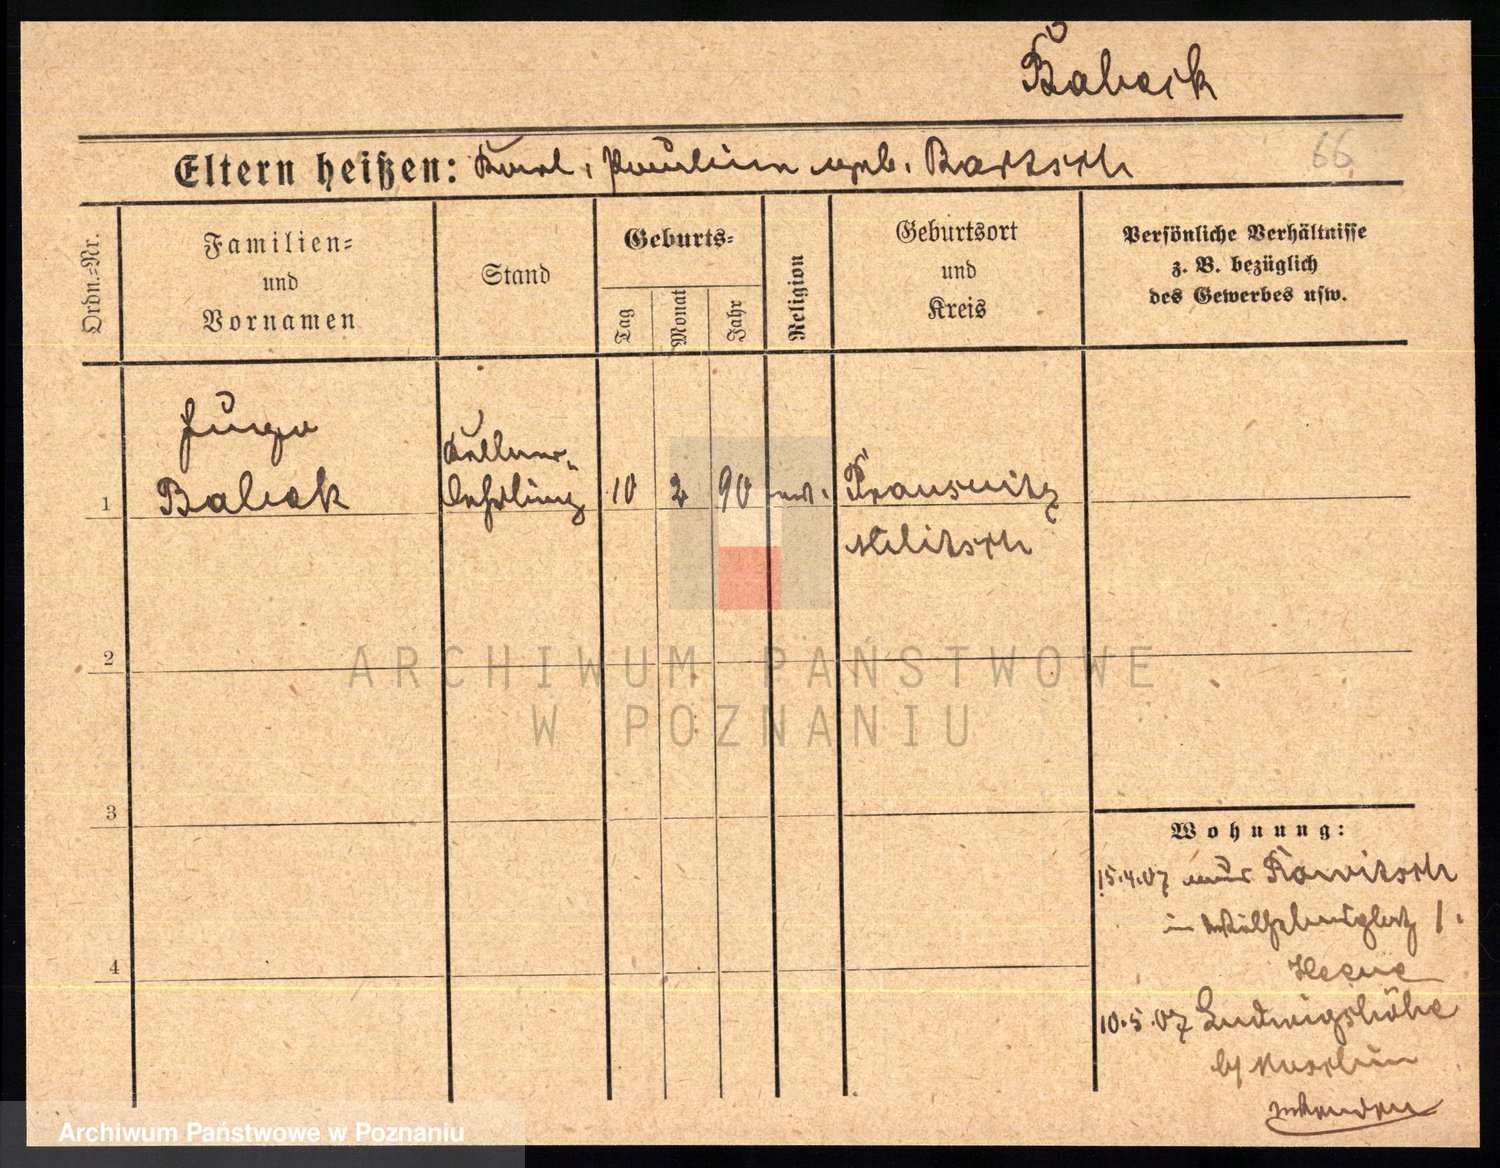 Baheck
66
Eltern heißen: Karl, Pauline geb. Bartsch
Ordn.=Nr.
Familien=
und
Vornamen
Stand
Geburts=
Tag
Monat
Jahr
Religion
Geburtsort
und
Kreis
Persönliche Verhältnisse
z. B. bezüglich
des Gewerbes usw.
Hugo
Kellner-
1 Baheck lehrling 10 2 90 Prausnitz
Militsch
2
ARCHIWUM PAŃSTWOWE
W POZNANIU
3
Wohnung:
15.4.07 aus Rawitsch
in Wilhelmsplatz 1.
4
10.5.07 Ludwigshöhe
b/ Moschin
Archiwum Państwowe w Poznaniu